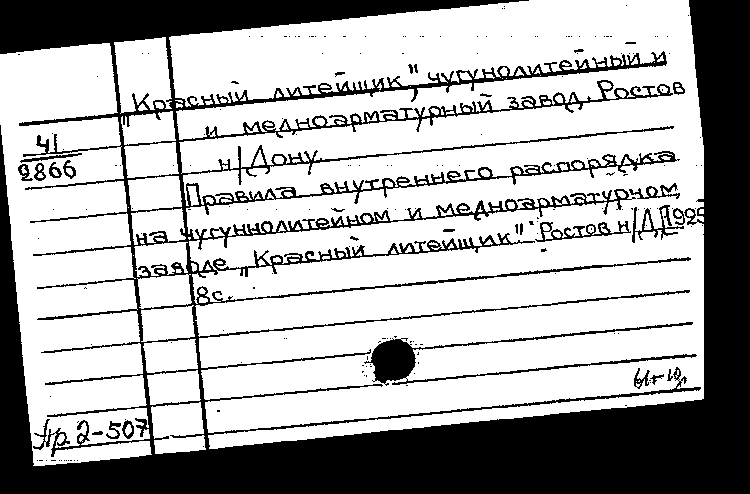 „Красный литейщик", чугунолитейный и
и медноарматурный завод. Ростов
н/Дону.
41
2866
Правила внутреннего распорядка
на чугуннолитейном и медноарматурном
заводе „Красный литейщик". Ростов н/Д, 1925
8с.
Пр. 2-507